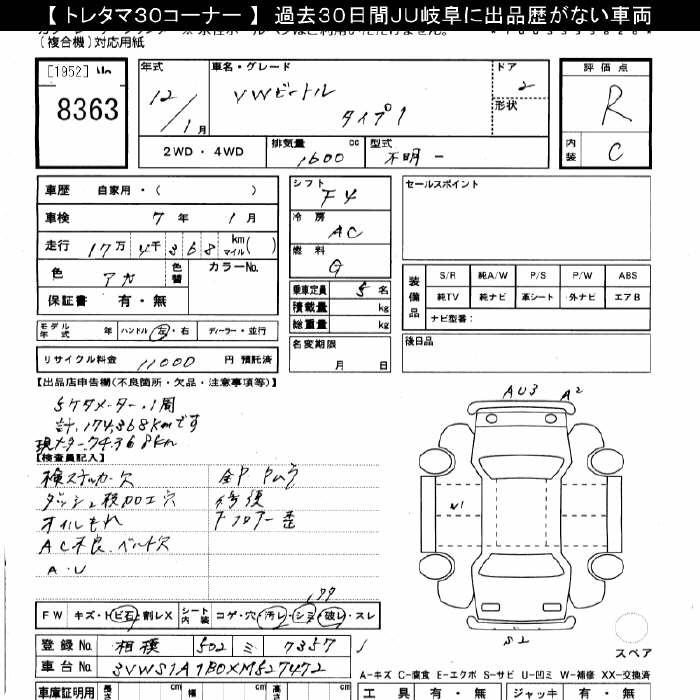 【 トレタマ30コーナー 】 過去30日間JU岐阜に出品歴がない車両
(複合機)対応用紙
[1952]
8363
年式
12/1月
車名・グレード
VWビートル
タイプ1
ドア
2
形状
評価点
R
内装
C
2WD・4WD
排気量
1600
cc
型式
不明 -
車歴 自家用・( )
車検 7年 1月
走行 17万 4千 3 6 8 km マイル( )
色 アカ 色替 カラーNo.
保証書 有・無
シフト
F4
冷房
AC
燃料
G
乗車定員 5 名
積載量 kg
総重量 kg
セールスポイント
装備品
S/R 純A/W P/S P/W ABS
純TV 純ナビ 革シート 外ナビ エアB
ナビ型番:
モデル年式 年 ハンドル 左・右 ディーラー・並行
リサイクル料金 11000 円 預託済
名変期限
月 日
後日品
【出品店申告欄(不良箇所・欠品・注意事項等)】
5ケタメーター1周
計174,368kmです
現メーター74,368km
【検査員記入】
検ステッカー欠
ダッシュ板加工穴
オイルもれ
AC不良、ベルト欠
A・U
全P Pムラ
修復
フロアー歪
AU3
A2
W1
S2
FW キズ・ヒビ石・割レX シート内装 コゲ・穴・汚レ・シミ・破レ・スレ
登録No. 相模 502 ミ 7357
車台No. 3VWS1A1B0XM527472
スペア
A-キズ C-腐食 E-エクボ S-サビ U-凹ミ W-補修 XX-交換済
車庫証明用 長さ cm 幅 cm 高さ cm
工具 有・無 ジャッキ 有・無